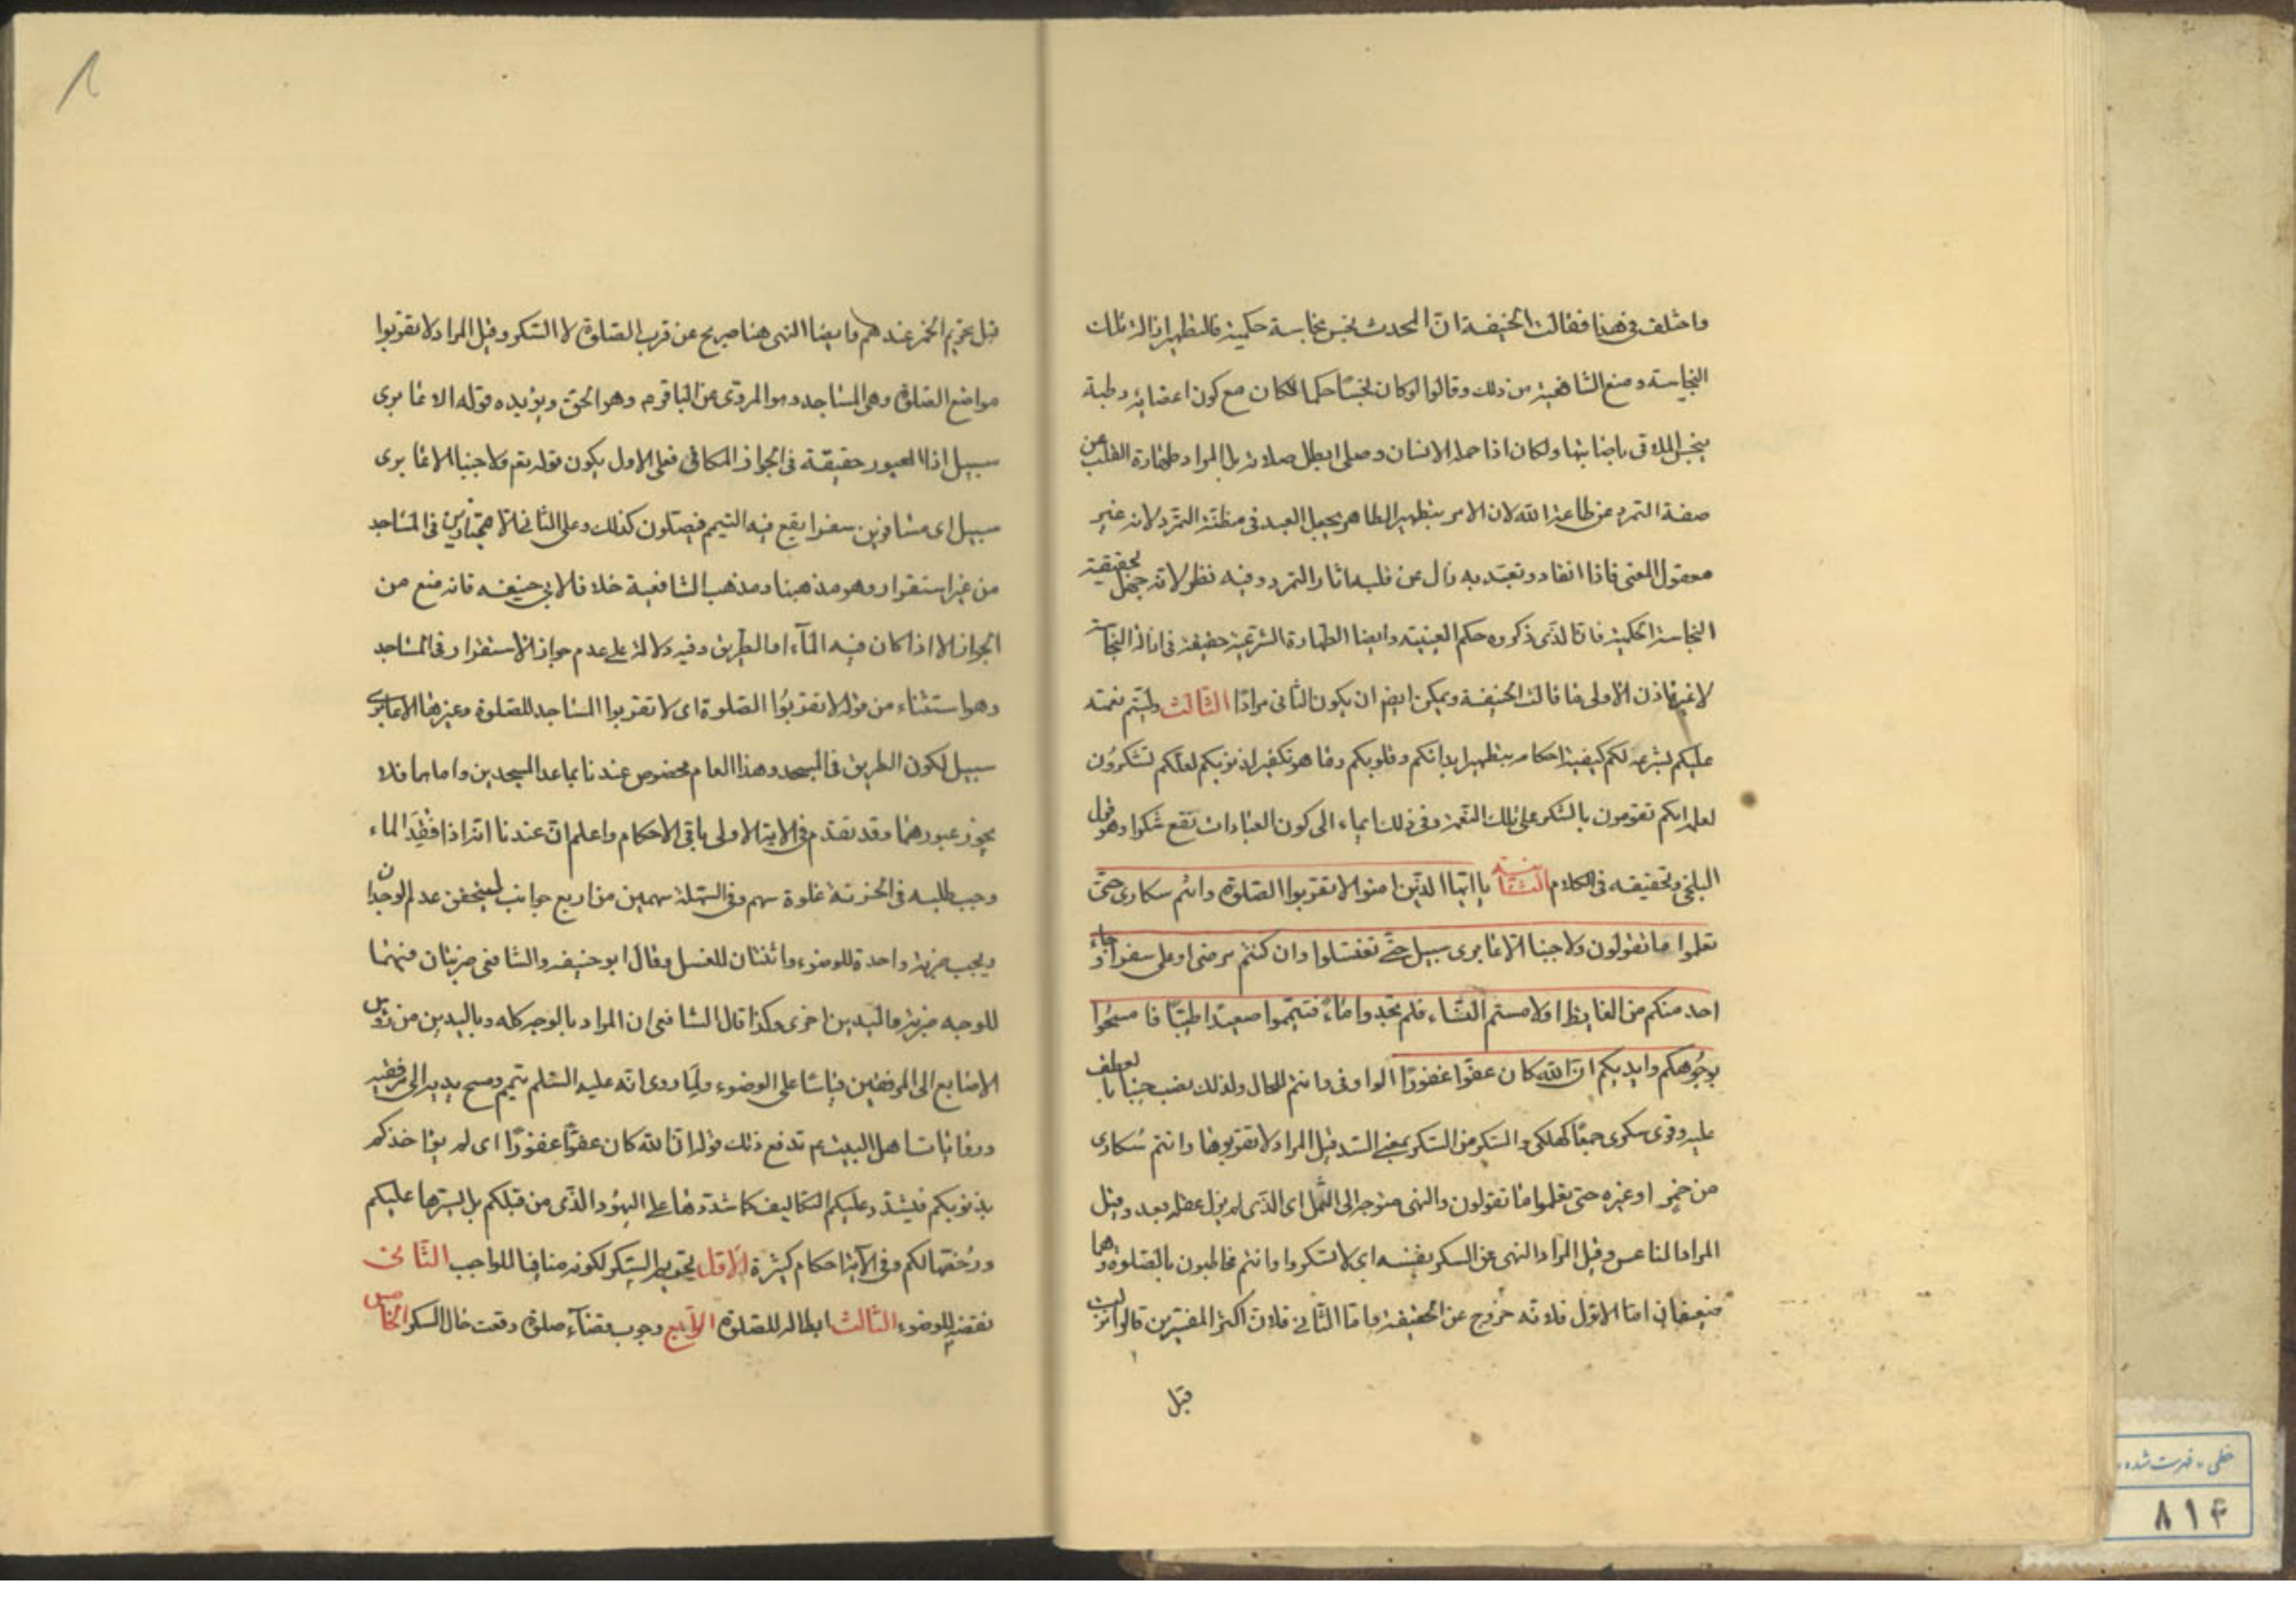 واختلف فى هذا فقالت الحنيفة ان المحدث نجس نجاسة حكمية فالتطهير ازالة تلك
النجاسة ومنع الشافعية من ذلك وقالوا لو كان نجسا حكما لكان مع كون اعضائه رطبة
ينجس الملاقى باصابتها ولكان اذا حمله الانسان وصلى ابطل صلاته بل المراد طهارة القلب عن
صفة التمرد عن طاعة الله لان الامر بتطهير الطاهر يجعل العبد فى مظنة التمرد لانه غير
معقول المعنى فاذا انقاد وتعبد به زال عن قلبه اثار التمرد وفيه نظر لانه جهل لحقيقة
النجاسة الحكمية فان الذى ذكروه حكم العينية وايضا الطهارة الشرعية حقيقة فى ازالة النجاسة
لا غير فاذن الاولى ما قالت الحنيفة ويمكن ايضا ان يكون الثانى مرادا الثالث وليتم نعمته
عليكم بشرعه لكم كيفية احكام بتطهير ابدانكم وقلوبكم وما هو تكفير لذنوبكم لعلكم تشكرون
لعله انكم تقومون بالشكر على تلك النعمة وفى ذلك ايماء الى كون العبادات تقع شكرا وهو قول
البلخى وتحقيقه فى الكلام الثانية يا ايها الذين امنوا لا تقربوا الصلوة وانتم سكارى حتى
تعلموا ما تقولون ولا جنبا الا عابرى سبيل حتى تغتسلوا وان كنتم مرضى او على سفر او جاء
احد منكم من الغايط او لامستم النساء فلم تجدوا ماء فتيمموا صعيدا طيبا فامسحوا
بوجوهكم وايديكم ان الله كان عفوا غفورا الواو فى وانتم للحال ولذلك نصب جنبا بالعطف
عليه وقرى سكرى جمعا كهلكى والسكر من السكر بمعنى السد قيل المراد لا تقربوها وانتم سكارى
من خمر او غيره حتى تعلموا ما تقولون والنهى متوجه الى الثمل اى الذى لم يزل عقله بعد وقيل
المراد الناعس وقيل المراد النهى عن السكر نفسه اى لا تسكروا وانتم مخاطبون بالصلوة وهما
ضعيفان اما الاول فلانه خروج عن الحقيقة واما الثانى فلان اكثر المفسرين قالوا نزلت
قبل
قبل تحريم الخمر عندهم وايضا النهى هنا صريح عن قرب الصلوة لا السكر وقيل المراد لا تقربوا
مواضع الصلوة وهى المساجد وهو المروى عن الباقر م وهو الحق ويؤيده قوله الا عابرى
سبيل اذ العبور حقيقة فى الجواز المكانى فعلى الاول يكون قوله تعم ولا جنبا الا عابرى
سبيل اى مسافرين سفرا يقع فيه التيمم فيصلون كذلك وعلى الثانى الا مجتازين فى المساجد
من غير استقرار وهو مذهبنا ومذهب الشافعية خلافا لابى حنيفه فانه منع من
الجواز الا اذا كان فيه الماء او الطريق وفيه دلالة على عدم جواز الاستقرار فى المساجد
وهو استثناء من قوله لا تقربوا الصلوة اى لا تقربوا المساجد للصلوة وغيرها الا عابرى
سبيل لكون الطريق فى المسجد وهذا العام مخصوص عندنا بما عدا المسجدين واما هما فلا
يجوز عبورهما وقد تقدم فى الاية الاولى باقى الاحكام واعلم ان عندنا انه اذا فقد الماء
وجب طلبه فى الحزنة غلوة سهم وفى السهلة سهمين من اربع جوانب ليتحقق عدم الوجدان
ويجب ضربة واحدة للوضوء واثنتان للغسل وقال ابو حنيفه والشافعى ضربتان فيهما
للوجه ضربة ولليدين اخرى وكذا قال الشافعى ان المراد بالوجه كله وباليدين من رؤس
الاصابع الى المرفقين قياسا على الوضوء ولما روى انه عليه السلم تيمم ومسح يديه الى مرفقيه
وروايات اهل البيت م تدفع ذلك قوله ان الله كان عفوا غفورا اى لم يؤاخذكم
بذنوبكم فيشدد عليكم التكاليف كما شددها على اليهود الذى من قبلكم بل يسرها عليكم
ورخصها لكم وفى الآية احكام كثيرة الاول تحريم السكر لكونه منافيا للواجب الثانى
نقضه للوضوء الثالث ابطاله للصلوة الرابع وجوب قضآء صلوة وقعت حال السكر الخامس
خطى - فهرست شده
۸۱۴